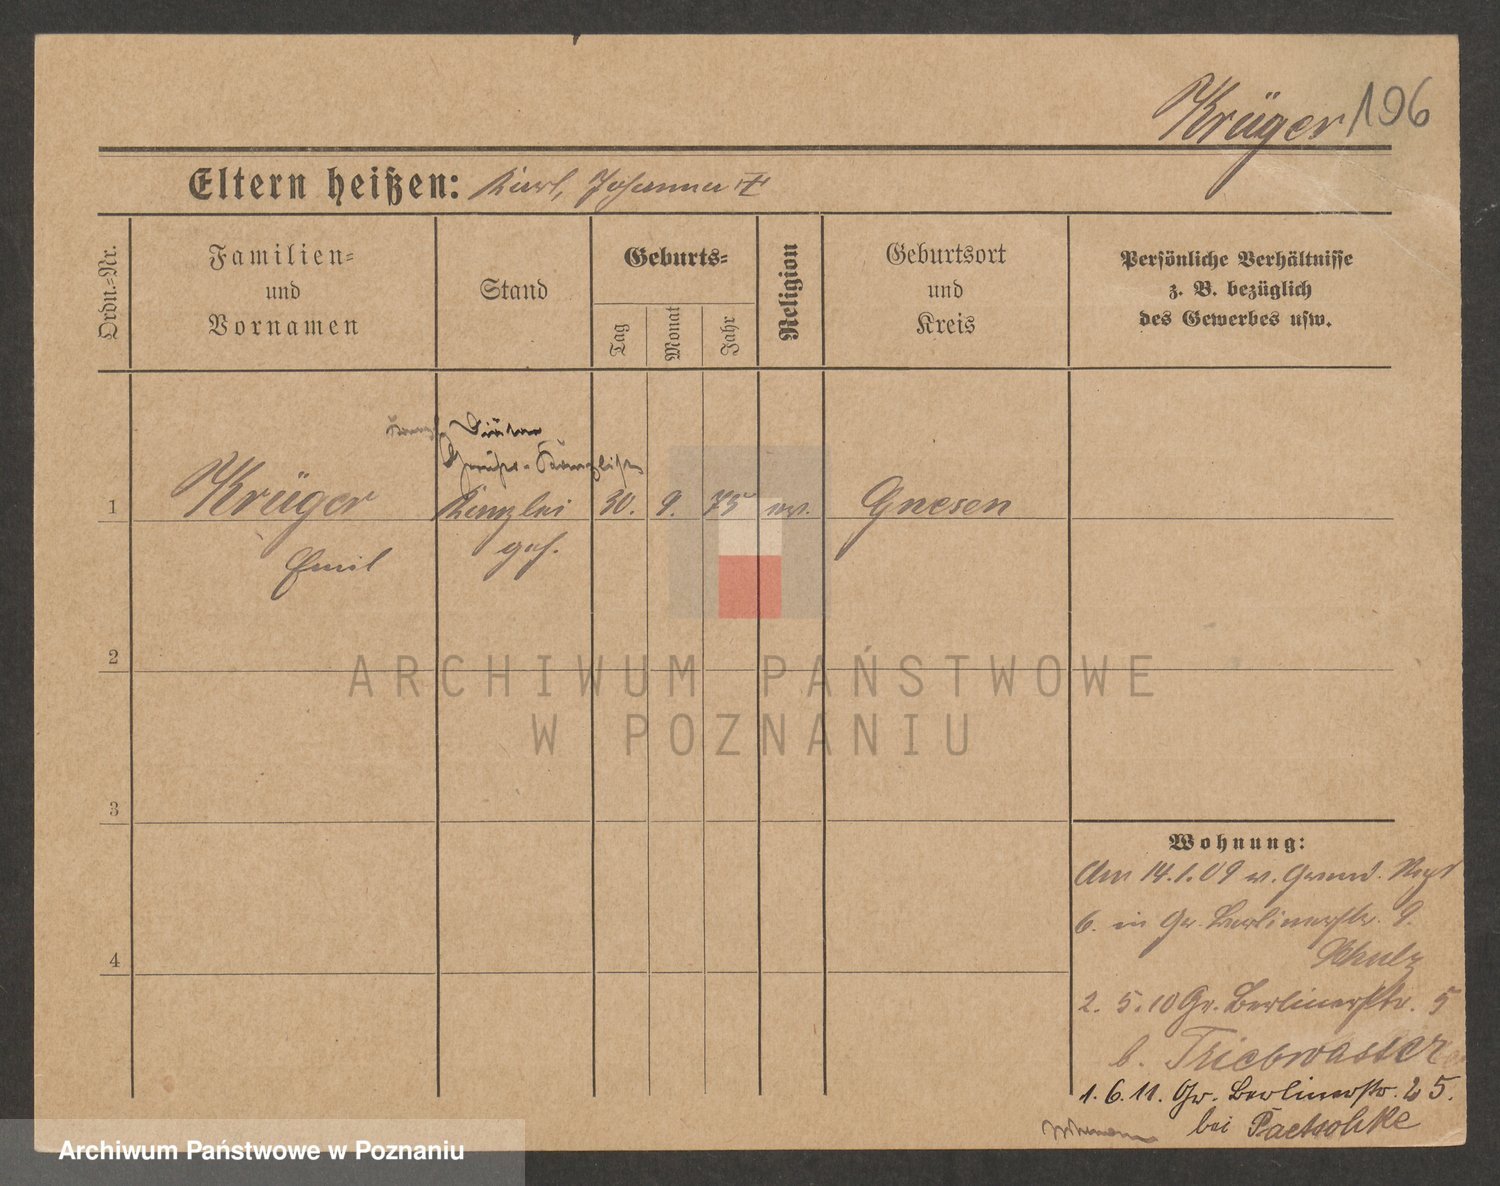 Krüger 106
Eltern heißen: Karl, Johanna
Ordn.-Nr.
Familien=
und
Vornamen
Stand
Geburts=
Tag
Monat
Jahr
Religion
Geburtsort
und
Kreis
Persönliche Verhältnisse
z. B. bezüglich
des Gewerbes usw.
Diätar
1 Krüger Kanzlei 30. 9. 75 ev. Gnesen
Emil geh.
2
ARCHIWUM PAŃSTWOWE
W POZNANIU
3
4
Wohnung:
Am 14.1.09 v.
b. in Gr. Berlinerstr. 9.
Schulz
2. 5. 10 Gr. Berlinerstr. 5
b. Triebwasser
1. 6. 11. Gr. Berlinerstr. 25.
bei Paetschke
Archiwum Państwowe w Poznaniu